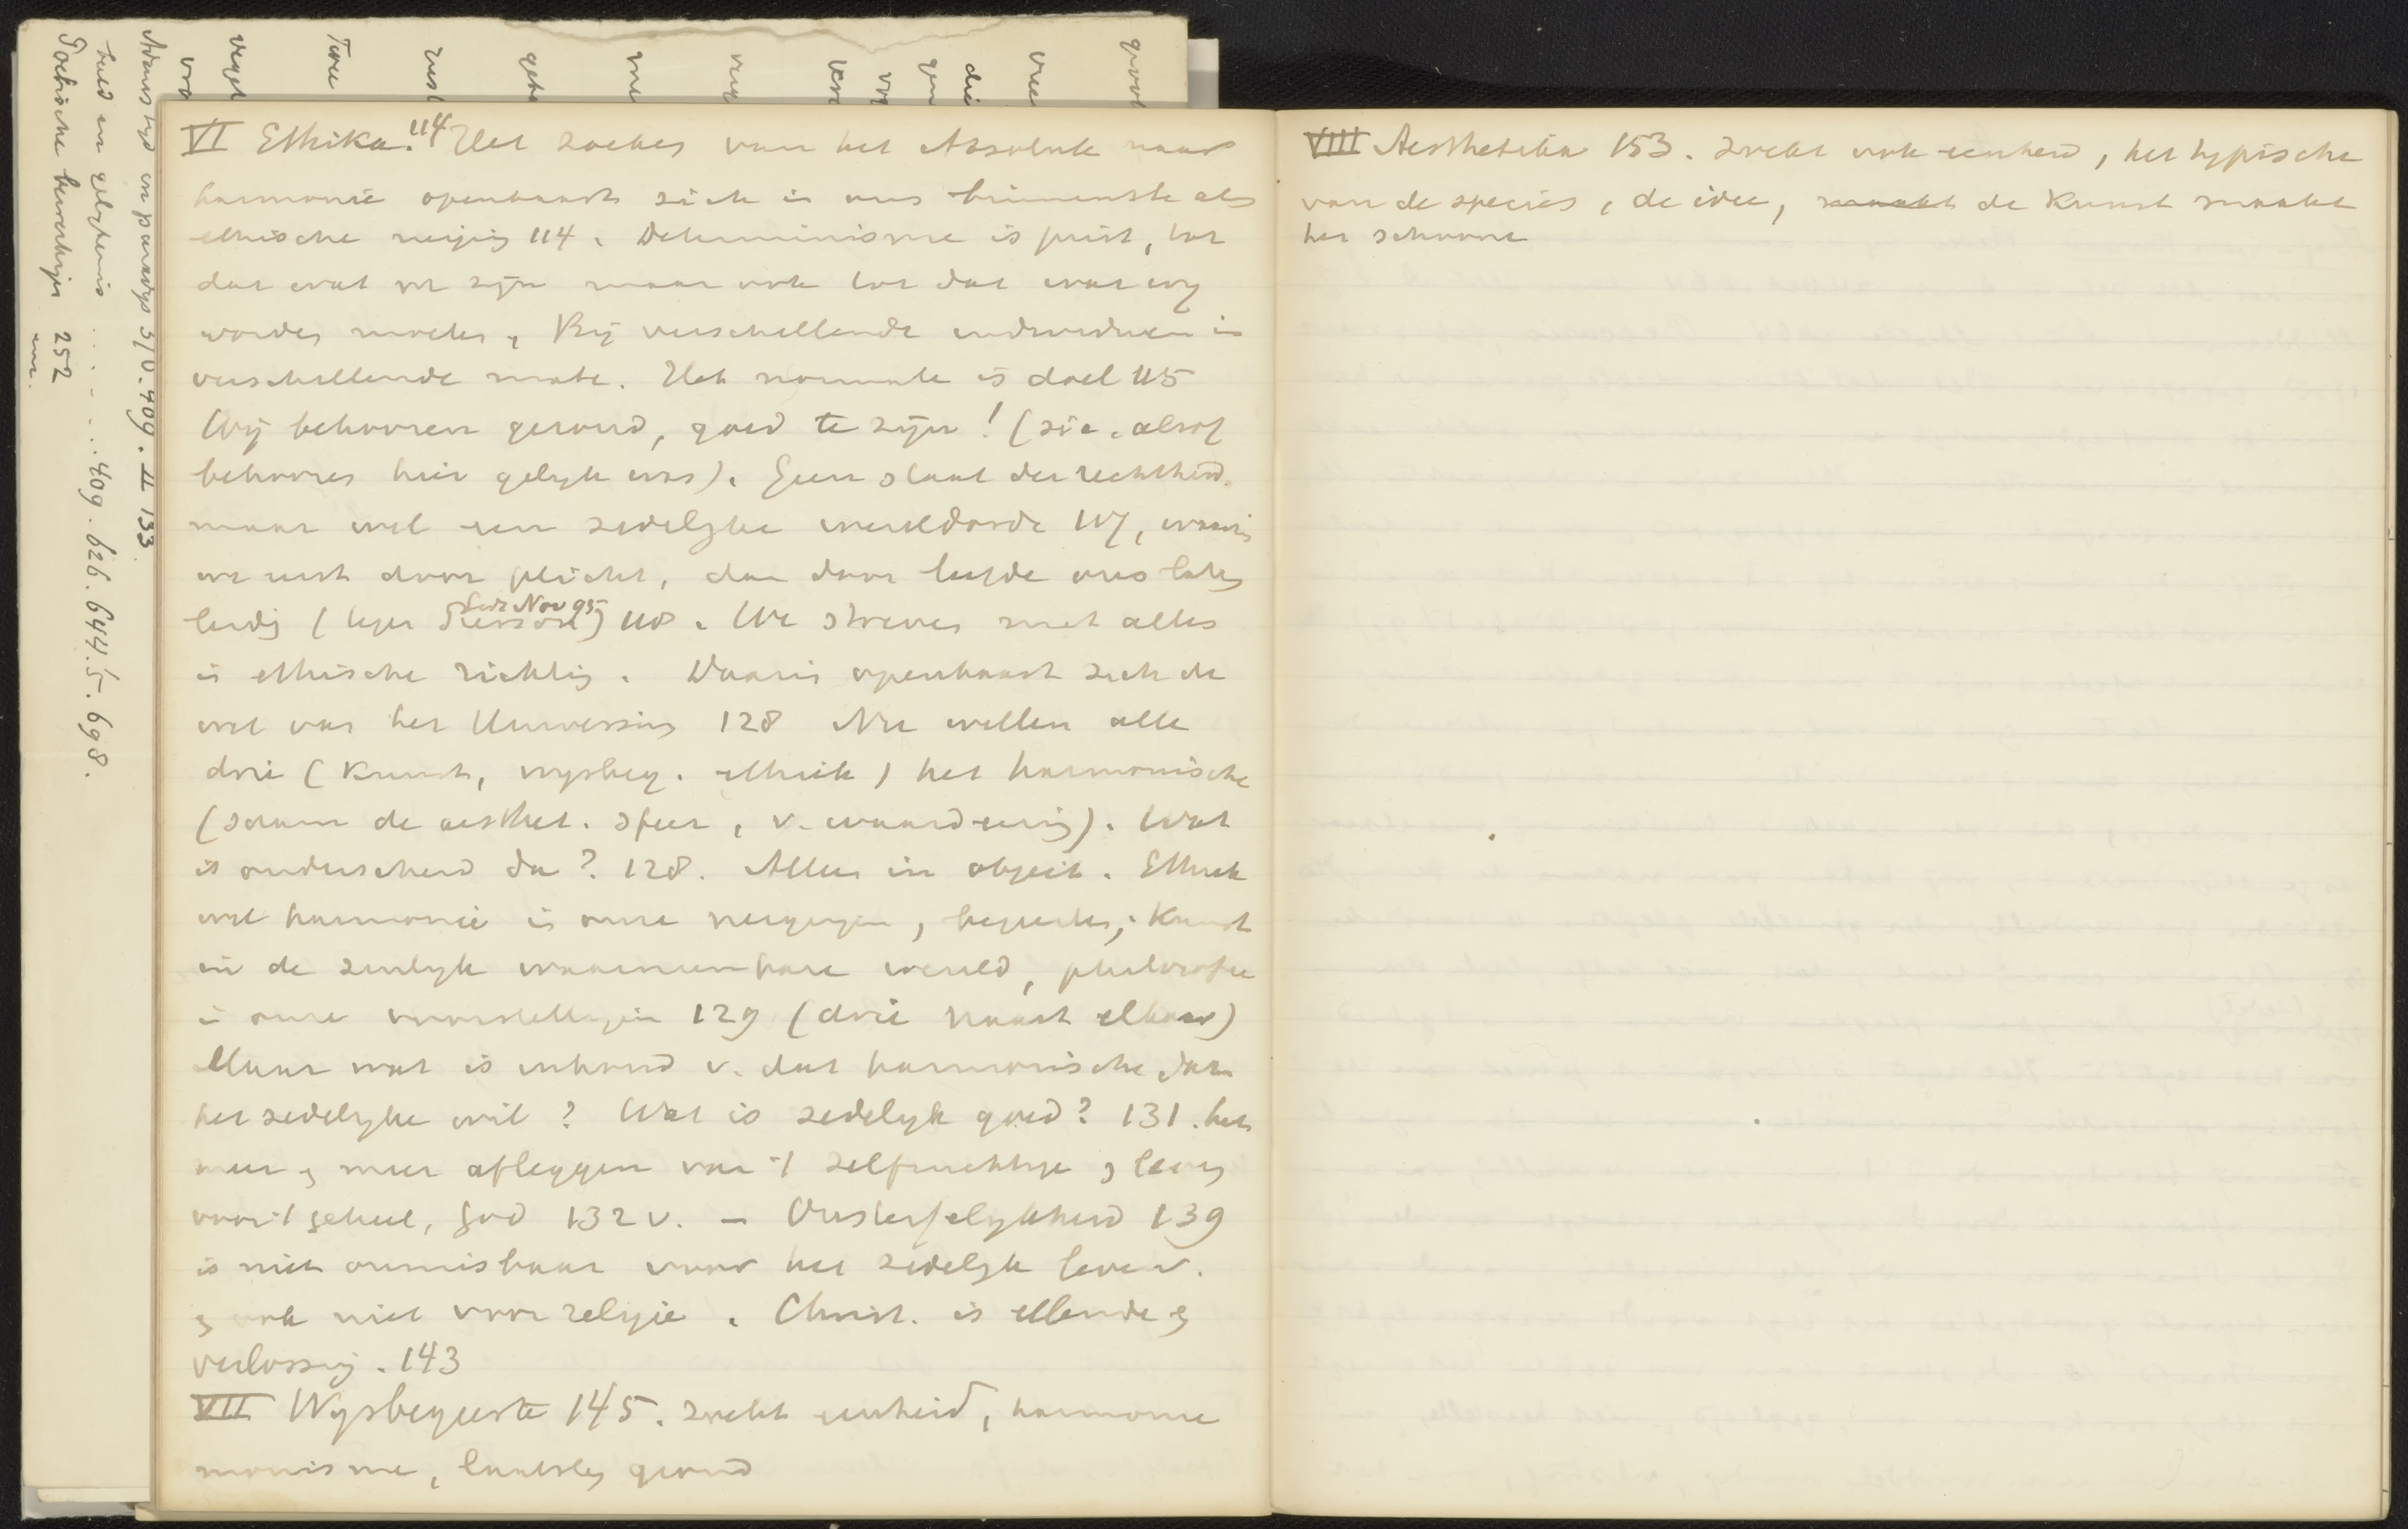 VI Ethika. 114 Het zoeken van het Absolute naar
harmonie openbaart zich in ons binnenste als
ethische neiging 114. Determinisme is juist, tot
dat wat we zijn maar ook tot dat wat wy
worden moeten, Bij verschillende individuen in
verschillende mate. Het normale is doel 115
Wij behooren gezond, goed te zijn! (sic. alsof
behooren hier gelyk was). Geen staat der rechtheid.
maar wel een zedelyke wereldorde 117, waarin
we eerst door plicht, dan door liefde ons laten
leiden (tegen Pierson Gids Nov 95) 118. We streven met alles
in ethische richting. Daarin openbaart zich de
wet van het Universum 128 Nu willen alle
drie (Kunst, wysbeg. ethiek) het harmonische
(saam de aesthet. sfeer, v. waardeering). Wat
is onderscheid dan? 128. Alleen in object. Ethiek
wil harmonie in onze neigingen, begeerten; Kunst
in de zinlyk waarneembare wereld, philosofie
in onze voorstellingen 129 (drie naast elkaar)
Maar wat is inhoud v. dat harmonische dat
het zedelyke wil? Wat is zedelyk goed? 131. het
meer en meer afleggen van 't zelfzuchtige en leven
voor 't geheel, God 132 v. – Onsterfelykheid 139
is niet onmisbaar voor het zedelyk leven.
en ook niet voor religie. Christ. is ellende en
verlossing. 143
VII Wysbegeerte 145. zoekt eenheid, harmonie
monisme, laatsten grond
VIII Aesthetika 153. zoekt ook eenheid, het typische
van de species, de idee, maakt de Kunst maakt
het schoone
Adams tyd en paradys 3/0. 409. II 133
beeld en gelykenis . . . . . . 409. 626. 644.5. 698.
Poëtische 252